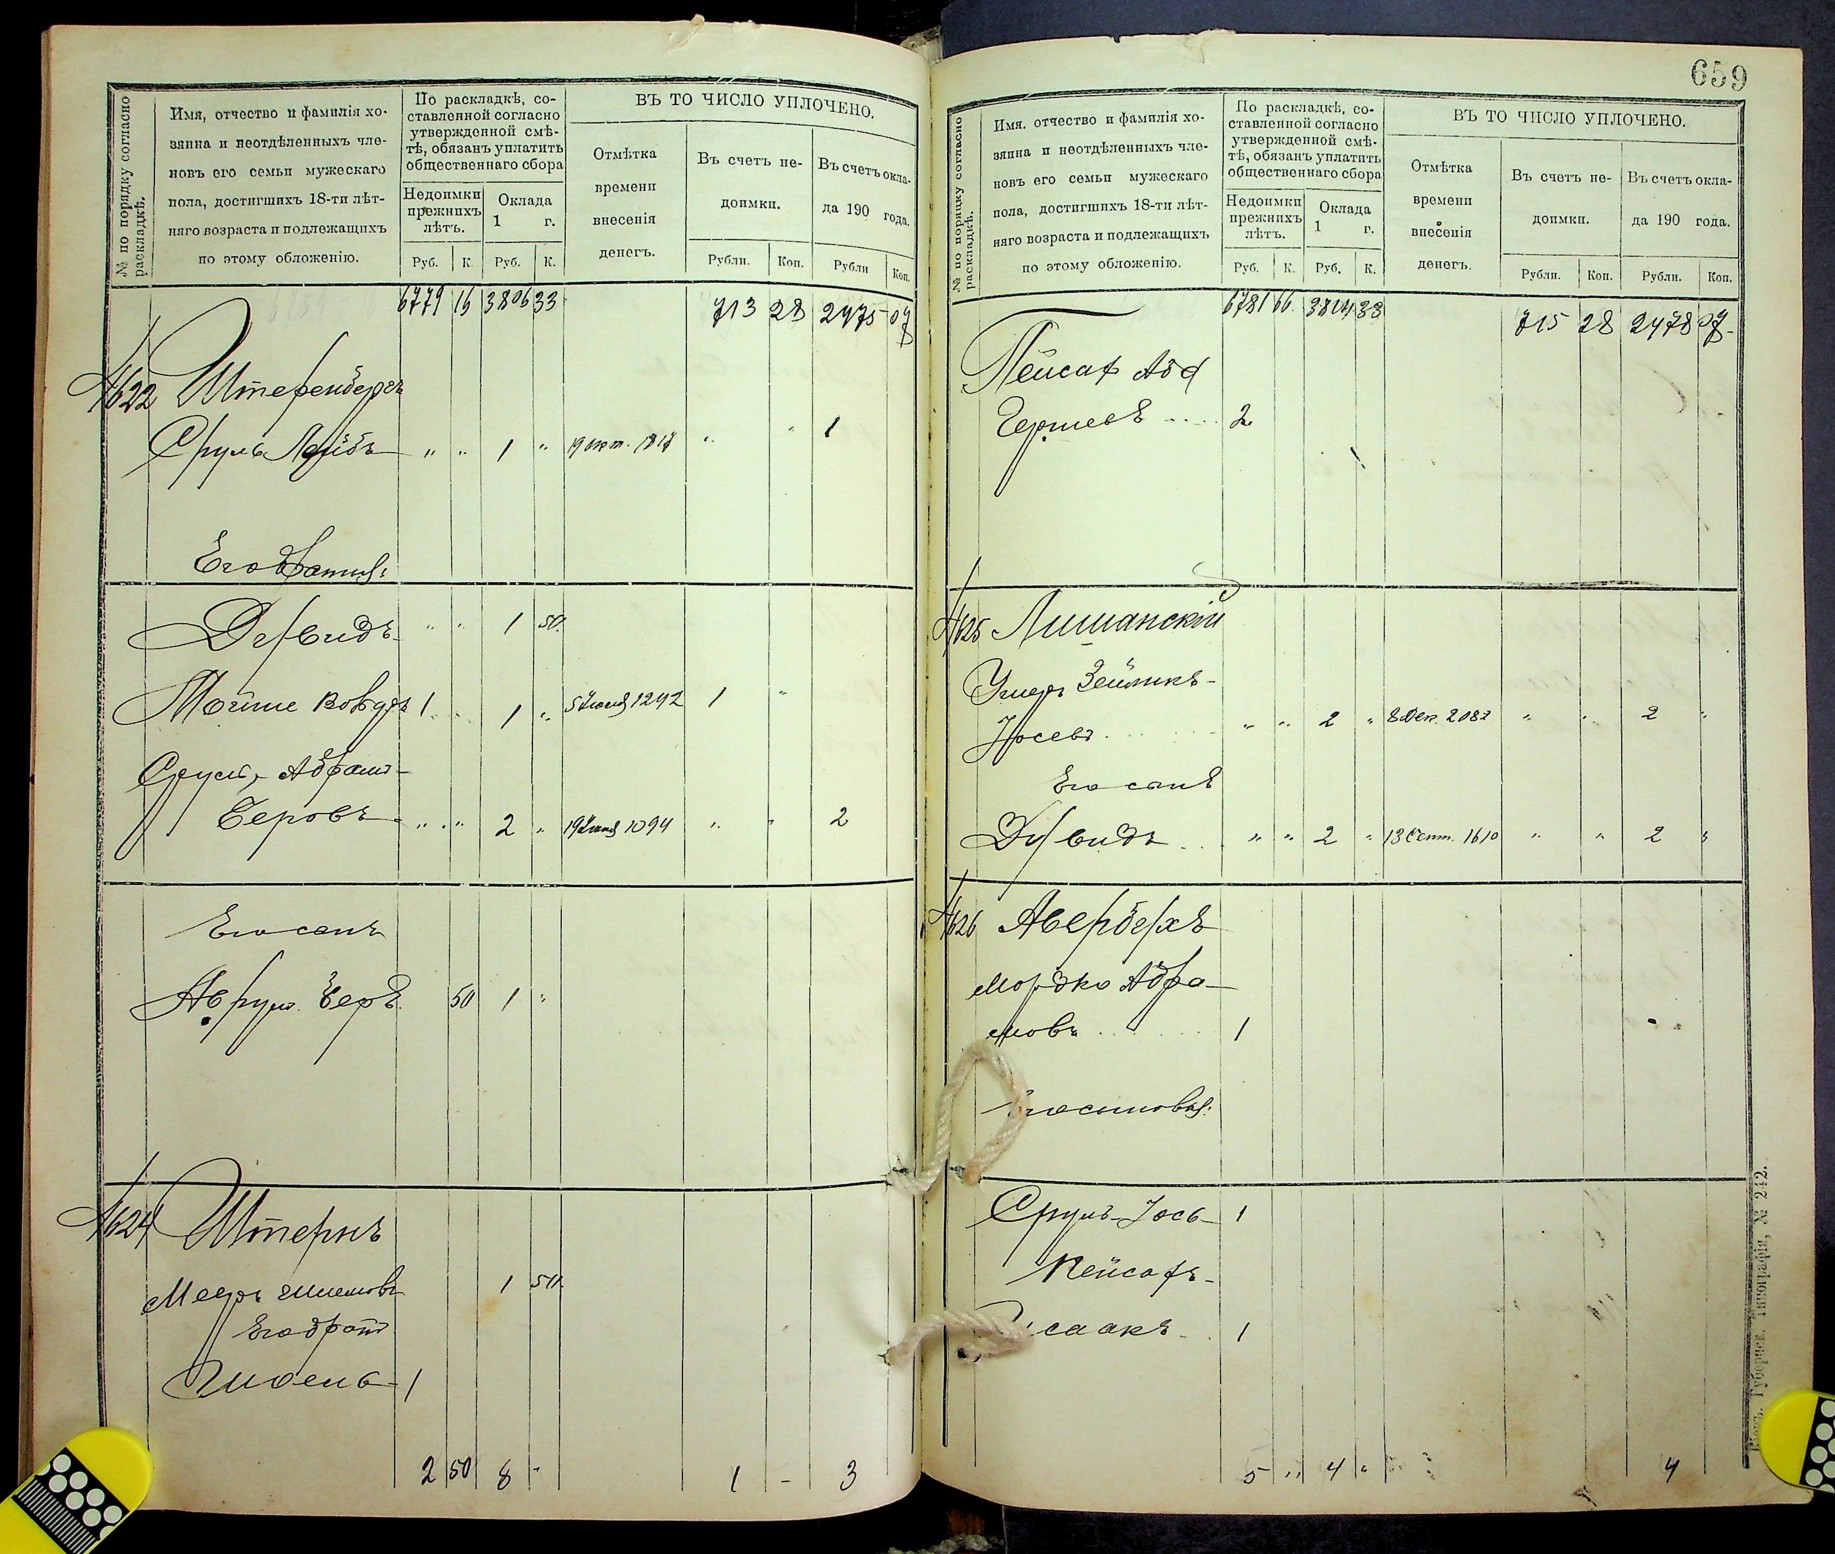 № по порядку согласно раскладкѣ.
Имя, отчество и фамилія хо-
зяина и неотдѣленныхъ чле-
новъ его семьи мужескаго
пола, достигшихъ 18-ти лѣт-
няго возраста и подлежащихъ
по этому обложенію.
По раскладкѣ, со-
ставленной согласно
утвержденной смѣ-
тѣ, обязанъ уплатить
общественнаго сбора
Недоимки прежнихъ лѣтъ.
Оклада 1 г.
Руб. К. Руб. К.
ВЪ ТО ЧИСЛО УПЛОЧЕНО.
Отмѣтка времени внесенія денегъ.
Въ счетъ не- доимки.
Въ счетъ окла- да 190 года.
Рубли. Коп. Рубли Коп.
6779 16 3806 33 713 28 2475 07
№622 Штеренбергъ
Сруль Лейбъ " " 1 " 19 окт. 1817 " " 1
Его братья:
Дувидъ " " 1 50.
Мойше 1 " 1 " 5 Іюня 1242 1 "
Сруль, Абрамъ-
Беровъ " " 2 " 19 1094 " " 2
Его сынъ
Аврум. Беръ 50 1 "
№624 Штернъ
Мееръ Шлемовъ 1 50.
Его братъ
Шоель 1
2 50 8 - 1 - 3
659
№ по порядку согласно раскладкѣ.
Имя. отчество и фамилія хо-
зяина и неотдѣленныхъ чле-
новъ его семьи мужескаго
пола, достигшихъ 18-ти лѣт-
няго возраста и подлежащихъ
по этому обложенію.
По раскладкѣ, со-
ставленной согласно
утвержденной смѣ-
тѣ, обязанъ уплатить
общественнаго сбора
Недоимки прежнихъ лѣтъ.
Оклада 1 г.
Руб. К. Руб. К.
ВЪ ТО ЧИСЛО УПЛОЧЕНО.
Отмѣтка времени внесенія денегъ.
Въ счетъ не- доимки.
Въ счетъ окла- да 190 года.
Рубли. Коп. Рубли. Коп.
6781 66 3814 33 715 28 2478 07
Пейсах Аба
Гершевъ 2
№625 Лишанскій
Ушеръ Зейликъ-
Іосевъ " " 2 " 8 Дек. 2082 " " 2 "
Его сынъ
Дувидъ " " 2 " 13 Сент. 1610 " " 2 "
№626 Авербухъ
Мордко Абра-
мовъ 1
Его сыновья:
Сруль-Іось 1
Пейсахъ-
Исаакъ 1
5 " 4 " 4
Губернск. Типографія, № 242.